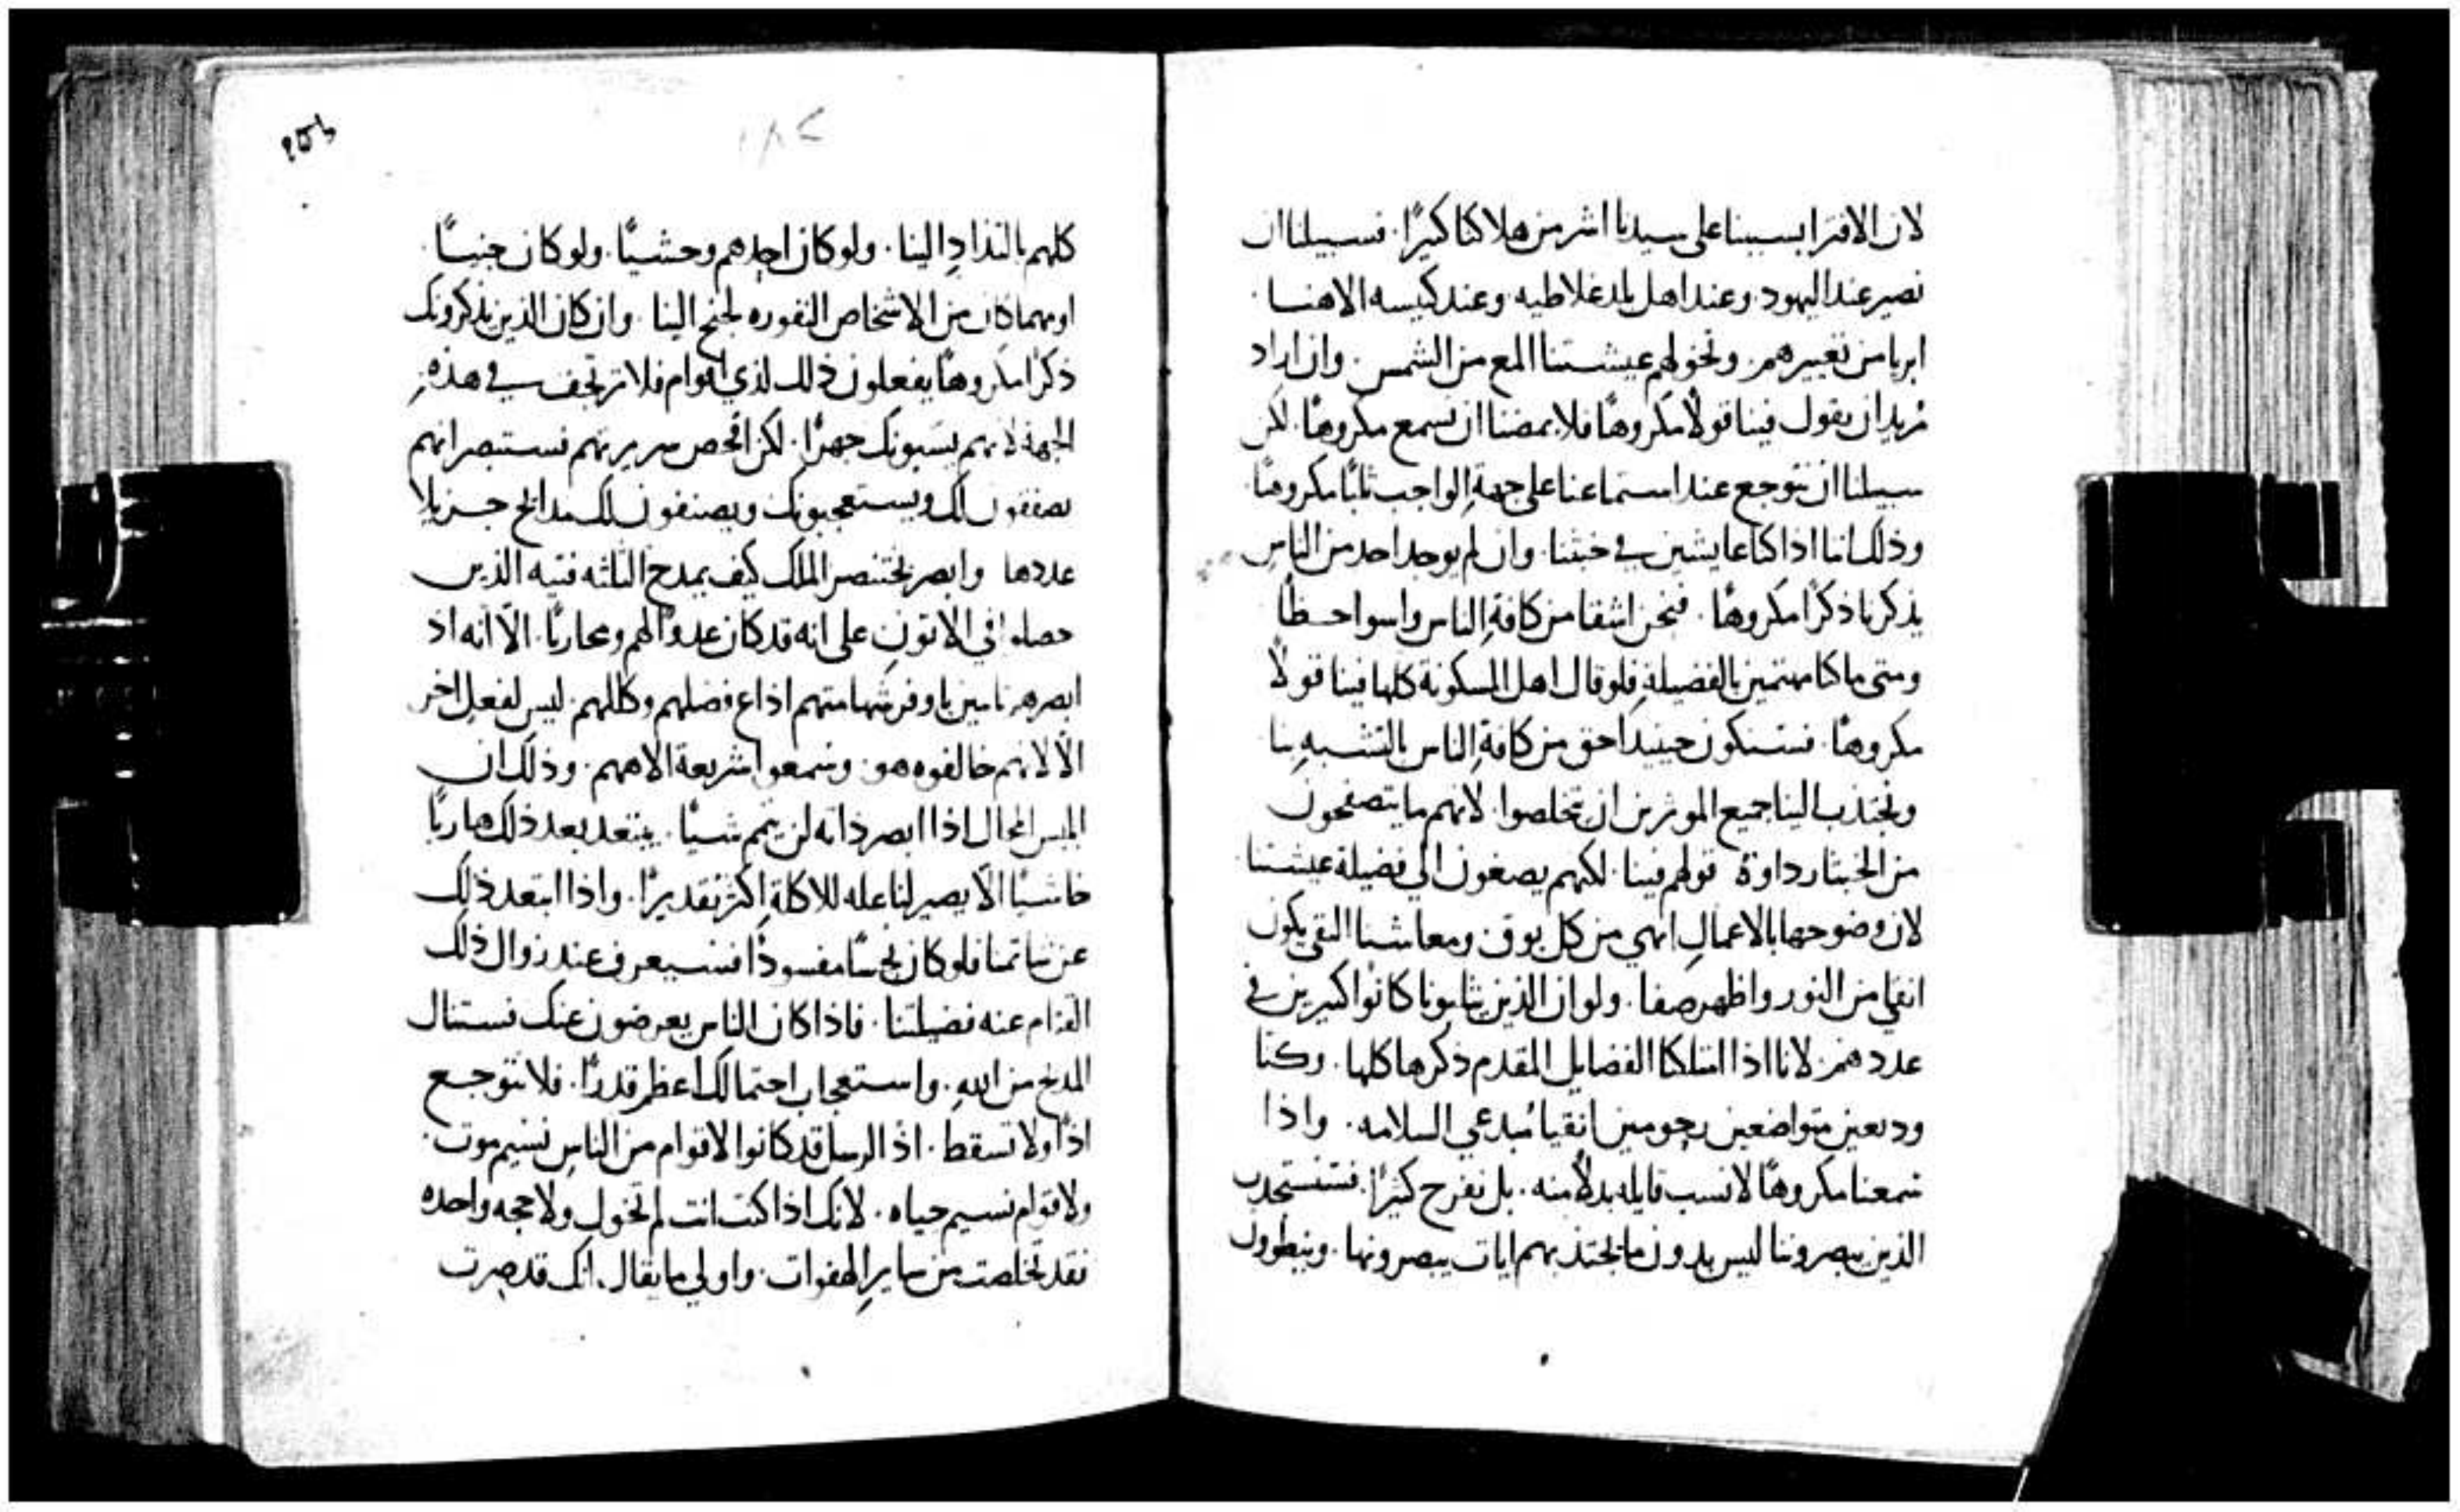 لان الافترا بسببنا على سيدنا اشر من هلاكنا كثيرًا. فسبيلنا ان
نصير عند اليهود. وعند اهل بلد غلاطيه. وعند كنيسه الاهنا.
ابريا من تعييرهم. ونخولهم عيشتنا المع من الشمس. وان اراد
مُريد ان يقول فينا قولًا مكروهًا فلا يمضنا ان نسمع مكروهًا. لكن
سبيلنا ان نتوجع عند استماعنا على جهةِ الواجب ثلبًا مكروهًا.
وذلك اننا اذا كنا عايشين في خبثنا. وان لم يوجد احد من الناسِ
يذكرنا ذكرًا مكروهًا. فنحن اشقا من كافةِ الناس واسوا حـظًا
ومتى ما كنا مهتمين بالفضيلةِ فلو قال اهل المسكونة كلها فينا قولًا
مكروهًا. فسنكون حينيدٍ احق من كافةِ الناس بالتشبـهِ بنا
ونجتذب الينا جميع الموثرين ان يتخلصوا. لانهم ما يتصفحون
من الخبثا رداوة قولهم فينا. لكنهم يصغون الي فضيلة عيشتنا
لان وضوحها بالاعمالِ ابهي من كل بوق. ومعاشنا النقي يكون
انقي من النور واظهر صفا. ولو ان الذين يثلبونا كانوا كثيرين في
عددهم. لاننا اذا امتلكنا الفضايل المقدم ذكرها كلها. وكنا
وديعين متواضعين رحومين انقيا مبدعي السلامه. واذا
سمعنا مكروهًا لا نسب قايله بدلًا منه. بل نفرح كثيرًا. فسنستجذب
الذين يبصروننا ليس بدون ما تجتذبهم ايات يبصرونها. ويبطوون
252
١٨٢
كلهم بالتذاذٍ الينا. ولو كان احدهم وحشـيًا. ولو كان جنيـًا.
او مهما كان من الاشخاص النفوره لجنح الينا. وان كان الذين يذكرونك
ذكرًا مكروهًا يفعلون ذلك لذي اقوام فلا ترتجف في هذهِ
الجهة لانهم يسبونك جهرًا. لكن افحص سريرتهم فستبصر انهم
يصفقون لك ويستعجبونك ويصنفون لك مدايح جـزيلا
عددها وابصر بختنصر الملك كيف يمدح الثلثه فتيه الذين
حصلوا في الاتونِ على انه قد كان عدوًا لهم ومحاربًا. الّا انه اذ
ابصرهم ثابتين باوفر شهامتهم اذاع فضلهم وكللهم. ليس لفعلٍ اخر
الّا لانهم خالفوه هو. وسمعوا شريعة الاههم. وذلك ان
ابليس المحال اذا ابصر ذاته لن يتمم شـيًا. يبتعد بعد ذلك هاربًا
خاشـيًا الّا يصير لنا عله للاكلةٍ اكثر تقديرًا. واذا ابتعد ذلك
عن شاتمنا فلو كان نجسًا مفسودًا فسـيعرف عند زوال ذلك
القتام عنه فضيلتنا. فاذا كان الناس يعرضون عنك فستنال
المديح من اللهِ. واستعجاب احتمالك اعظم قدرًا. فلا تتوجـع
اذًا ولا تسقط. اذ الرسل قد كانوا لاقوام من الناسِ نسيم موت.
ولاقوام نسيم حياه. لانك اذا كنت انت لم تخول ولا حجه واحده
فقد تخلصت من سايرِ الهفوات. واولي ما يقال. انك قد صرت